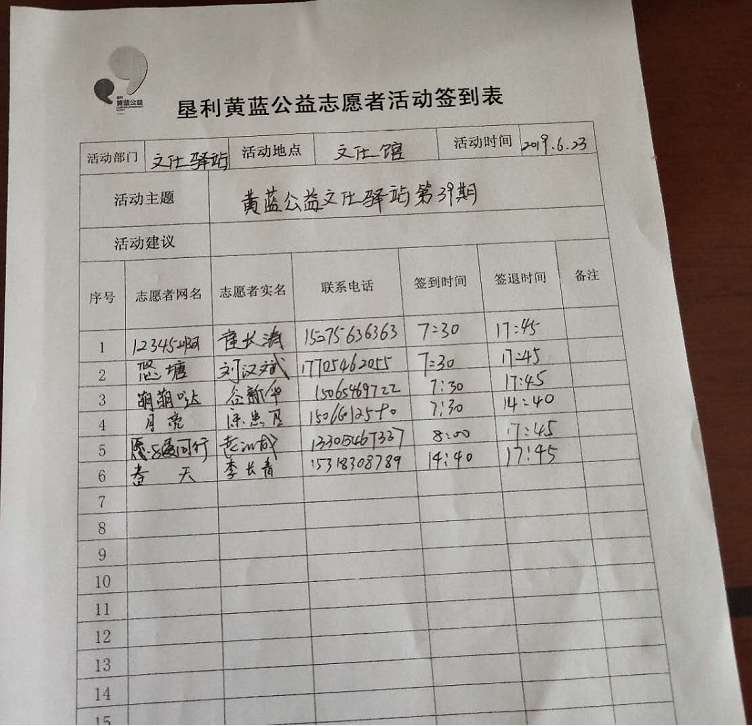 黄蓝公益
垦利黄蓝公益志愿者活动签到表
活动部门 文仕驿站 活动地点 文仕馆 活动时间 2019.6.23
活动主题 黄蓝公益文仕驿站第39期
活动建议
序号 志愿者网名 志愿者实名 联系电话 签到时间 签退时间 备注
1 12345 长海 15275636363 7:30 17:45
2 悠塘 刘汉斌 17705462055 7:30 17:45
3 萌萌哒 谷新华 15065469722 7:30 17:45
4 月亮 7:30 14:40
5 同行 13305467327 8:00 17:45
6 春天 李长青 15318308789 14:40 17:45
7
8
9
10
11
12
13
14
15